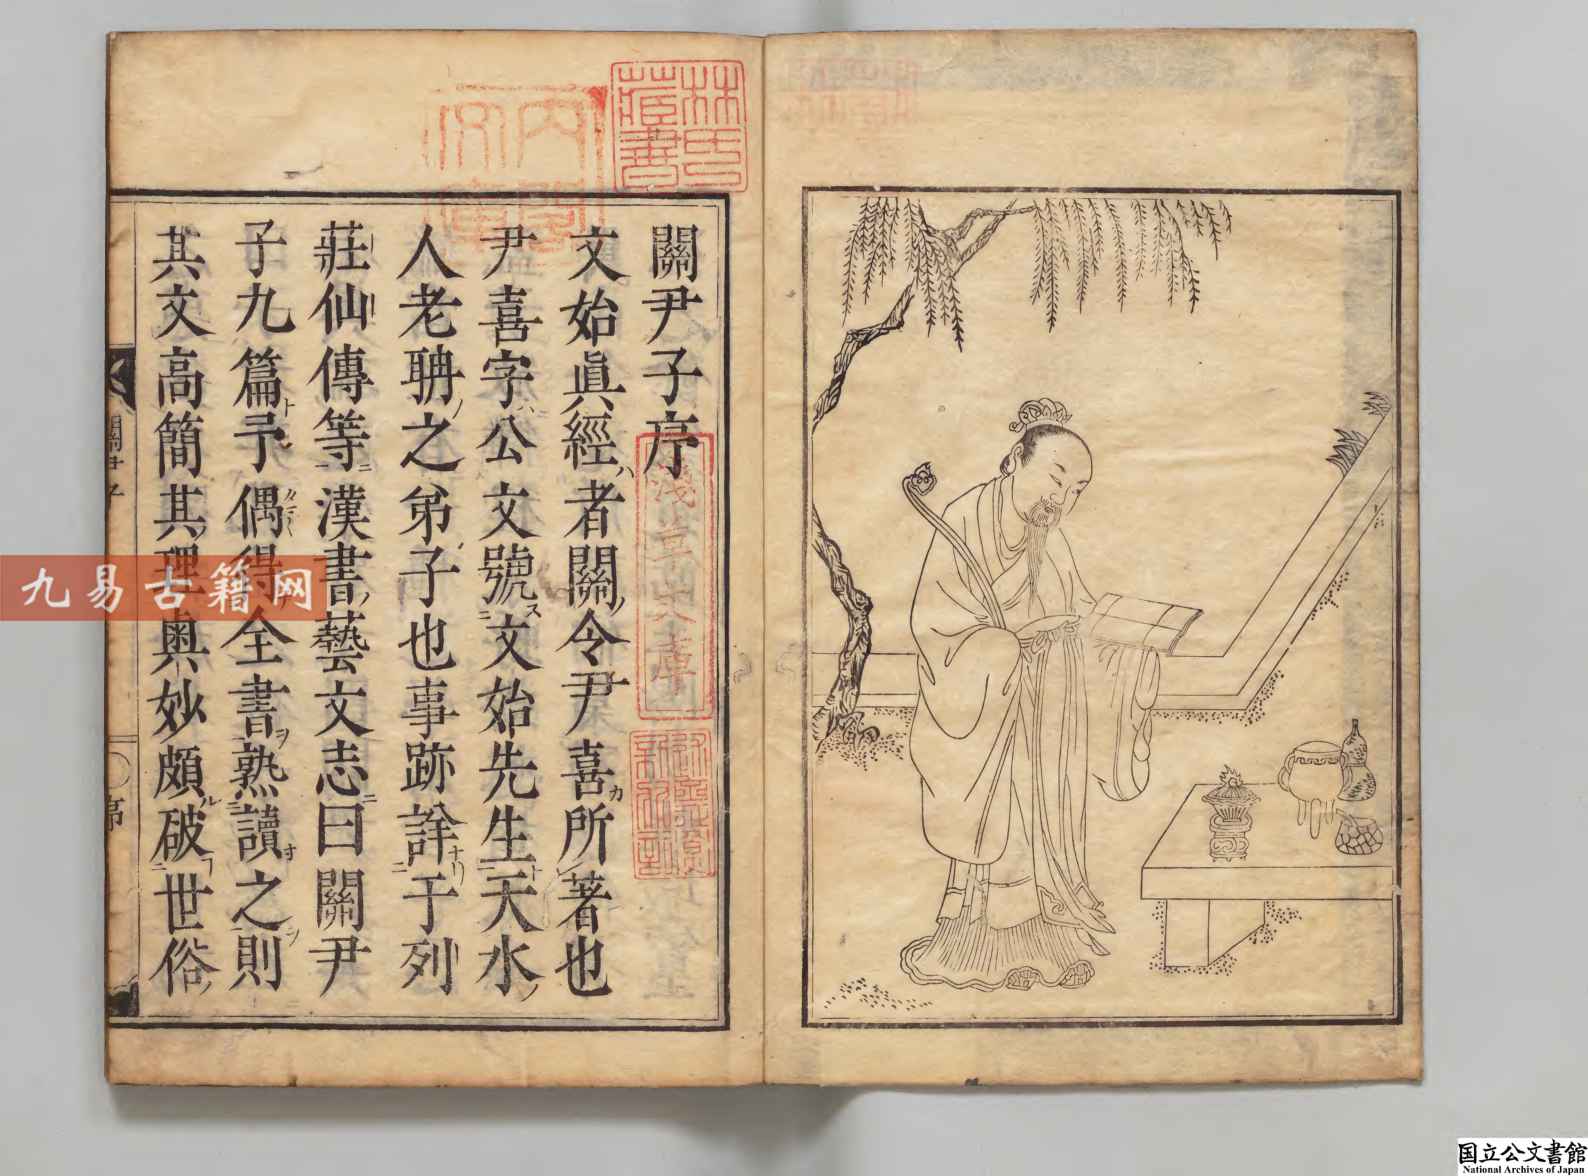 關尹子序
文始眞經者關令尹喜所著也
尹喜字公文號文始先生天水
人老聃之弟子也事跡詳于列
莊仙傳等漢書藝文志曰關尹
子九篇予偶得全書熟讀之則
其文高簡其理奧妙頗破世俗
關尹子
序
林氏藏書
淺草文庫
九易古籍网
国立公文書館
National Archives of Japan